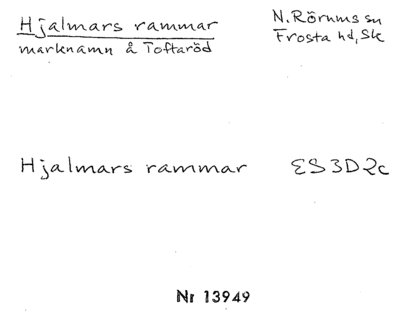 Hjalmars rammar
marknamn å Toftaröd
N. Rörums sn
Frosta hd, Sk
Hjalmars rammar ES3D2c
Nr 13949